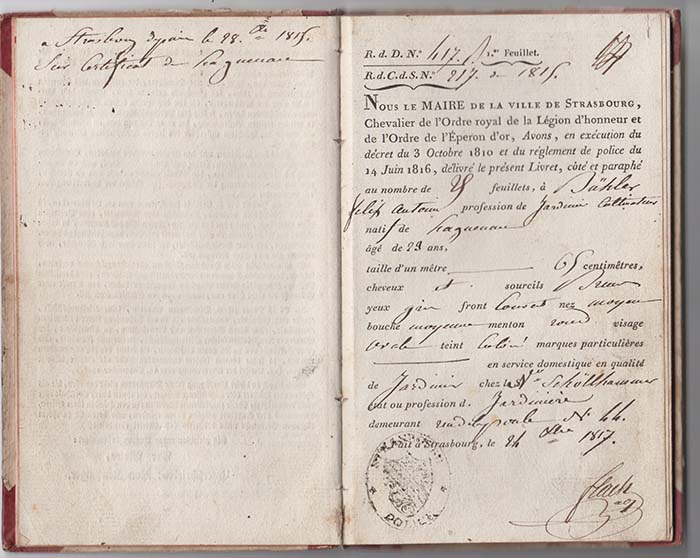 a Strasbourg depuis le 28. 8bre 1815.
Sur Certificat de haguenau
R. d. D. N.° 417. 1.er Feuillet.
R. d. C. d. S. N.° 217. de 1815.
NOUS LE MAIRE DE LA VILLE DE STRASBOURG,
Chevalier de l'Ordre royal de la Légion d'honneur et
de l'Ordre de l'Éperon d'or, Avons, en exécution du
décret du 3 Octobre 1810 et du réglement de police du
14 Juin 1816, délivré le présent Livret, côté et paraphé
au nombre de 28 feuillets, à Bühler
felix Antoine profession de Jardinier Cultivateur
natif de haguenau
âgé de 29 ans,
taille d'un mètre 65 centimètres,
cheveux et sourcils Bruns
yeux gris front Couvert nez moyen
bouche moyenne menton rond visage
Ovale teint Coloré marques particulières
en service domestique en qualité
de Jardinier chez la Ve Schöllhammer
état ou profession d. Jardinière
demeurant N. 44.
Fait à Strasbourg, le 24 8bre 1817.
POLICE